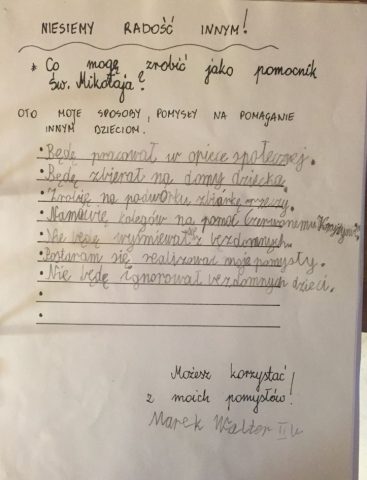 NIESIEMY RADOŚĆ INNYM!
* Co mogę zrobić jako pomocnik
Św. Mikołaja?
OTO MOJE SPOSOBY, POMYSŁY NA POMAGANIE
INNYM DZIECIOM.
• Będę pracował w opiece społecznej.
• Będę zbierał na domy dziecka.
• Zrobię na podwórku zbiórkę rzeczy.
• Namówię kolegów na pomoc Czerwonemu Krzyżowi.
• Nie będę wyśmiewał się z bezdomnych.
• Postaram się realizować moje pomysły.
• Nie będę ignorował bezdomnych dzieci.
•
•
Możesz korzystać
z moich pomysłów!
Marek Walter II